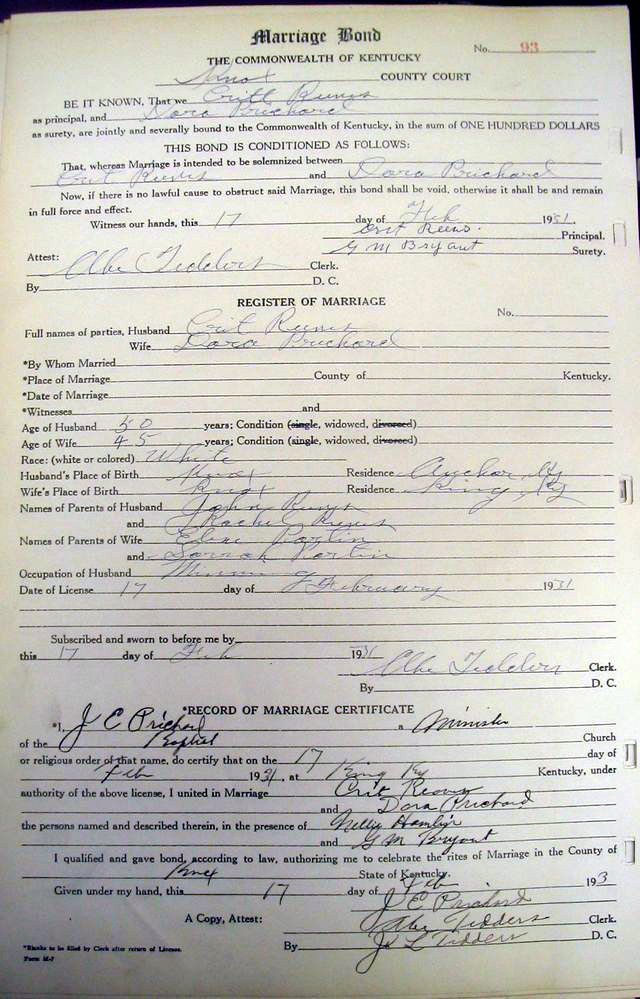 Marriage Bond
No. 93
THE COMMONWEALTH OF KENTUCKY
Knox COUNTY COURT
BE IT KNOWN, That we Critt Reeves
as principal, and Dora Prichard
as surety, are jointly and severally bound to the Commonwealth of Kentucky, in the sum of ONE HUNDRED DOLLARS
THIS BOND IS CONDITIONED AS FOLLOWS:
That, whereas Marriage is intended to be solemnized between
Crit Reeves and Dora Prichard
Now, if there is no lawful cause to obstruct said Marriage, this bond shall be void, otherwise it shall be and remain
in full force and effect.
Witness our hands, this 17 day of Feb 1931.
Crit Reevs. Principal.
G M Bryant Surety.
Attest:
Abe Tedders Clerk.
By D. C.
REGISTER OF MARRIAGE
No.
Full names of parties, Husband Crit Reeves
Wife Dora Prichard
*By Whom Married
*Place of Marriage County of Kentucky.
*Date of Marriage
*Witnesses and
Age of Husband 50 years; Condition (single, widowed, divorced)
Age of Wife 45 years; Condition (single, widowed, divorced)
Race: (white or colored) White
Husband's Place of Birth Knox Residence Anchor, Ky
Wife's Place of Birth Knox Residence King, Ky
Names of Parents of Husband John Reeves
and Rachel Reeves
Names of Parents of Wife Partin
and Sarrah Partin
Occupation of Husband Mining
Date of License 17 day of February 1931
Subscribed and sworn to before me by
this 17 day of Feb 1931
Abe Tedders Clerk.
By D. C.
*RECORD OF MARRIAGE CERTIFICATE
*I, J E Prichard a Minister
of the Baptist Church
or religious order of that name, do certify that on the 17 day of
Feb 1931, at King Ky Kentucky, under
authority of the above license, I united in Marriage Crit Reaves
and Dora Prichard
the persons named and described therein, in the presence of Nellie
and G M Bryant
I qualified and gave bond, according to law, authorizing me to celebrate the rites of Marriage in the County of
Knox State of Kentucky.
Given under my hand, this 17 day of Feb 193
J E Prichard
A Copy, Attest: Abe Tedders Clerk.
By J L Tedders D. C.
*Blanks to be filed by Clerk after return of License.
Form M-7